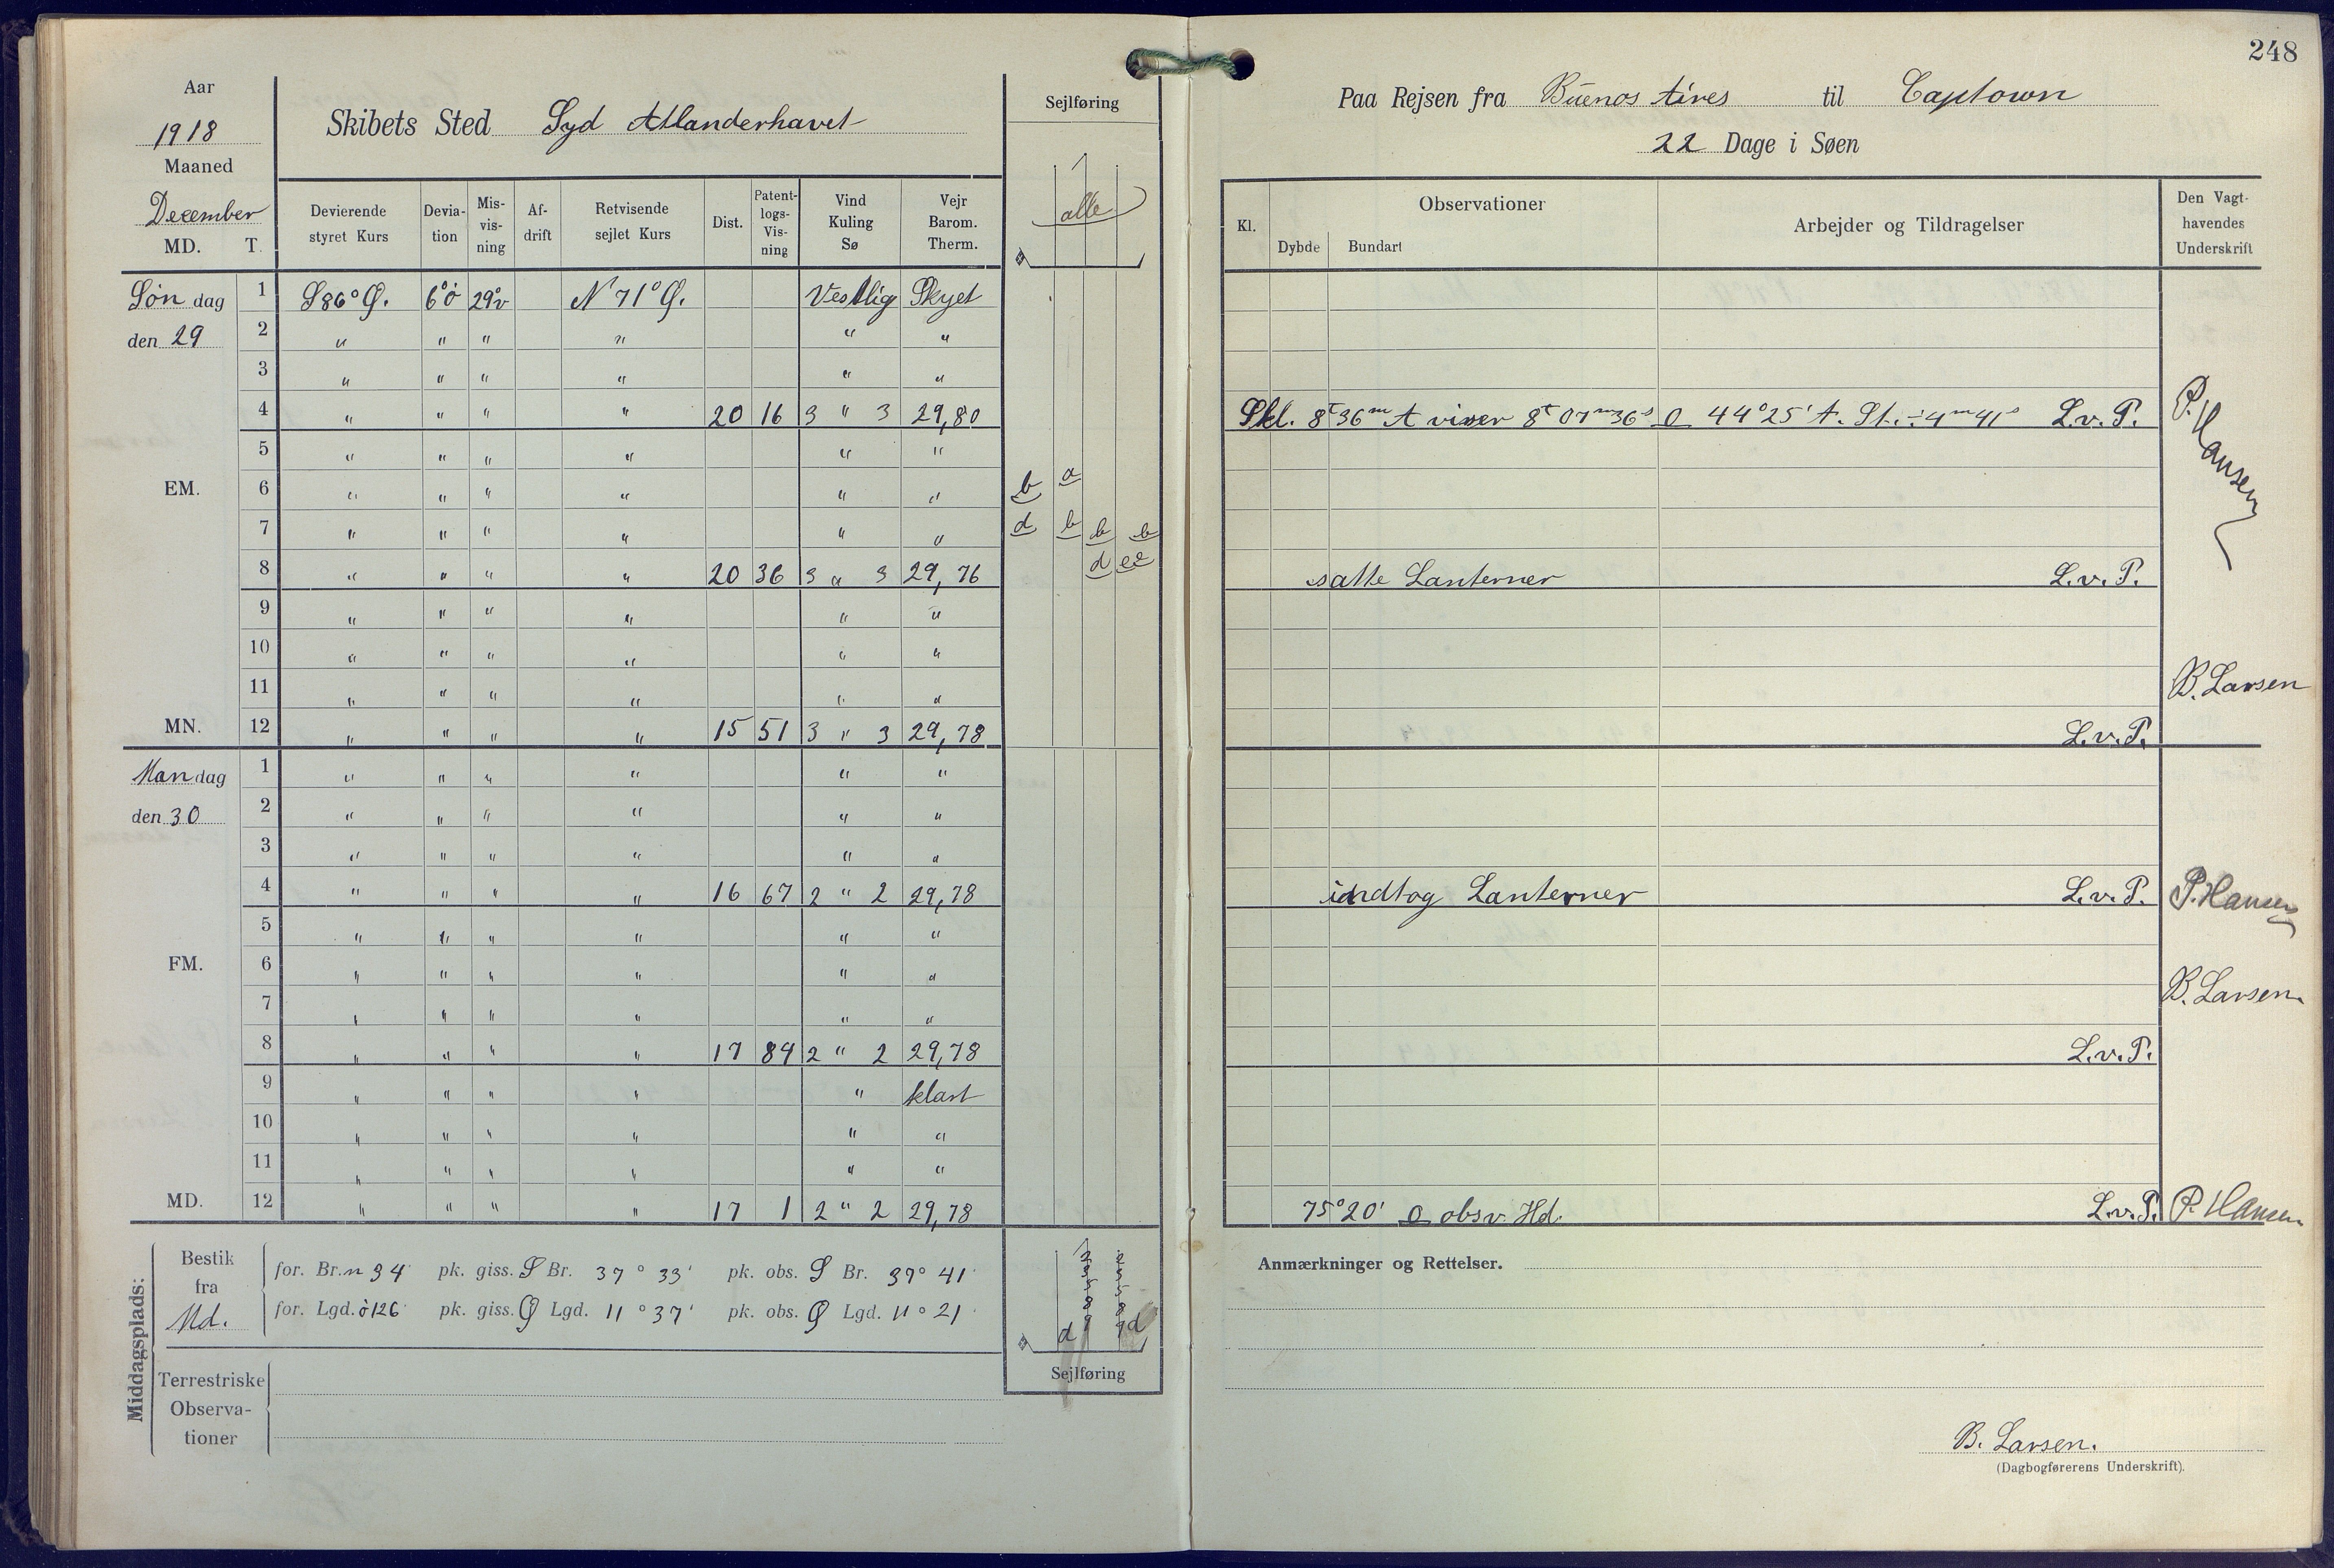 248
Aar
1918
Maaned
December
MD. T.
Skibets Sted Syd Atlanderhavet
Sejlføring
alle
Paa Rejsen fra Buenos Aires til Captown
22 Dage i Søen
Devierende styret Kurs
Devia-tion
Mis-vis-ning
Af-drift
Retvisende sejlet Kurs
Dist.
Patent-logs-Vis-ning
Vind Kuling Sø
Vejr Barom. Therm.
Kl.
Observationer
Dybde Bundart
Arbejder og Tildragelser
Den Vagt-havendes Underskrift
Søn dag 1 S86° Ø. 6°ö 29°v N 71° Ø. Vestlig Skyet
den 29 2 " " " " " "
3 " " " " " "
4 " " " " 20 16 3 " 3 29,80 Skl. 8t 36m A viser 8t 07m 36s O 44°25' A. St. ÷ 4m 41s L.v.P. P. Hansen
5 " " " " " "
EM. 6 " " " " " " b a
7 " " " " " " d b b b
8 " " " " 20 36 3 " 3 29,76 d ee satte Lanterner L.v.P.
9 " " " " " "
10 " " " " " "
11 " " " " " " B. Larsen
MN. 12 " " " " 15 51 3 " 3 29,78 L.v.P.
Man dag 1 " " " " " "
den 30 2 " " " " " "
3 " " " " " "
4 " " " " 16 67 2 " 2 29,78 indtog Lanterner L.v.P. P. Hansen
5 " " " " " "
FM. 6 " " " " " "
7 " " " " " " B. Larsen.
8 " " " " 17 84 2 " 2 29,78 L.v.P.
9 " " " " " klart
10 " " " " " "
11 " " " " " "
MD. 12 " " " " 17 1 2 " 2 29,78 75°20' O obsv. Hd. L.v.P. P. Hansen
Middagsplads:
Bestik fra Md.
for. Br. n 34' pk. giss. S Br. 37° 33' pk. obs. S Br. 37° 41'
for. Lgd. ö 126' pk. giss. Ø Lgd. 11° 37' pk. obs. Ø Lgd. 11° 21'
Terrestriske Observa-tioner
d d
Sejlføring
Anmærkninger og Rettelser.
B. Larsen.
(Dagbogførerens Underskrift).